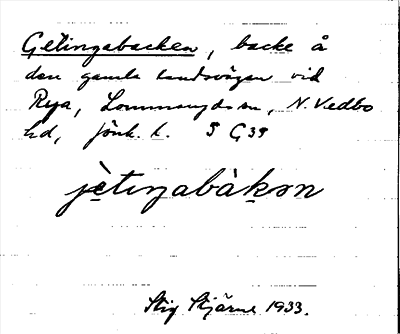 Getingabacken, backe å
den gamla landsvägen vid
Rya, Lommaryds sn, N. Vedbo
hd, Jönk. l. 5 G 39
jètiŋabàkən
Stig Stjärne 1933.